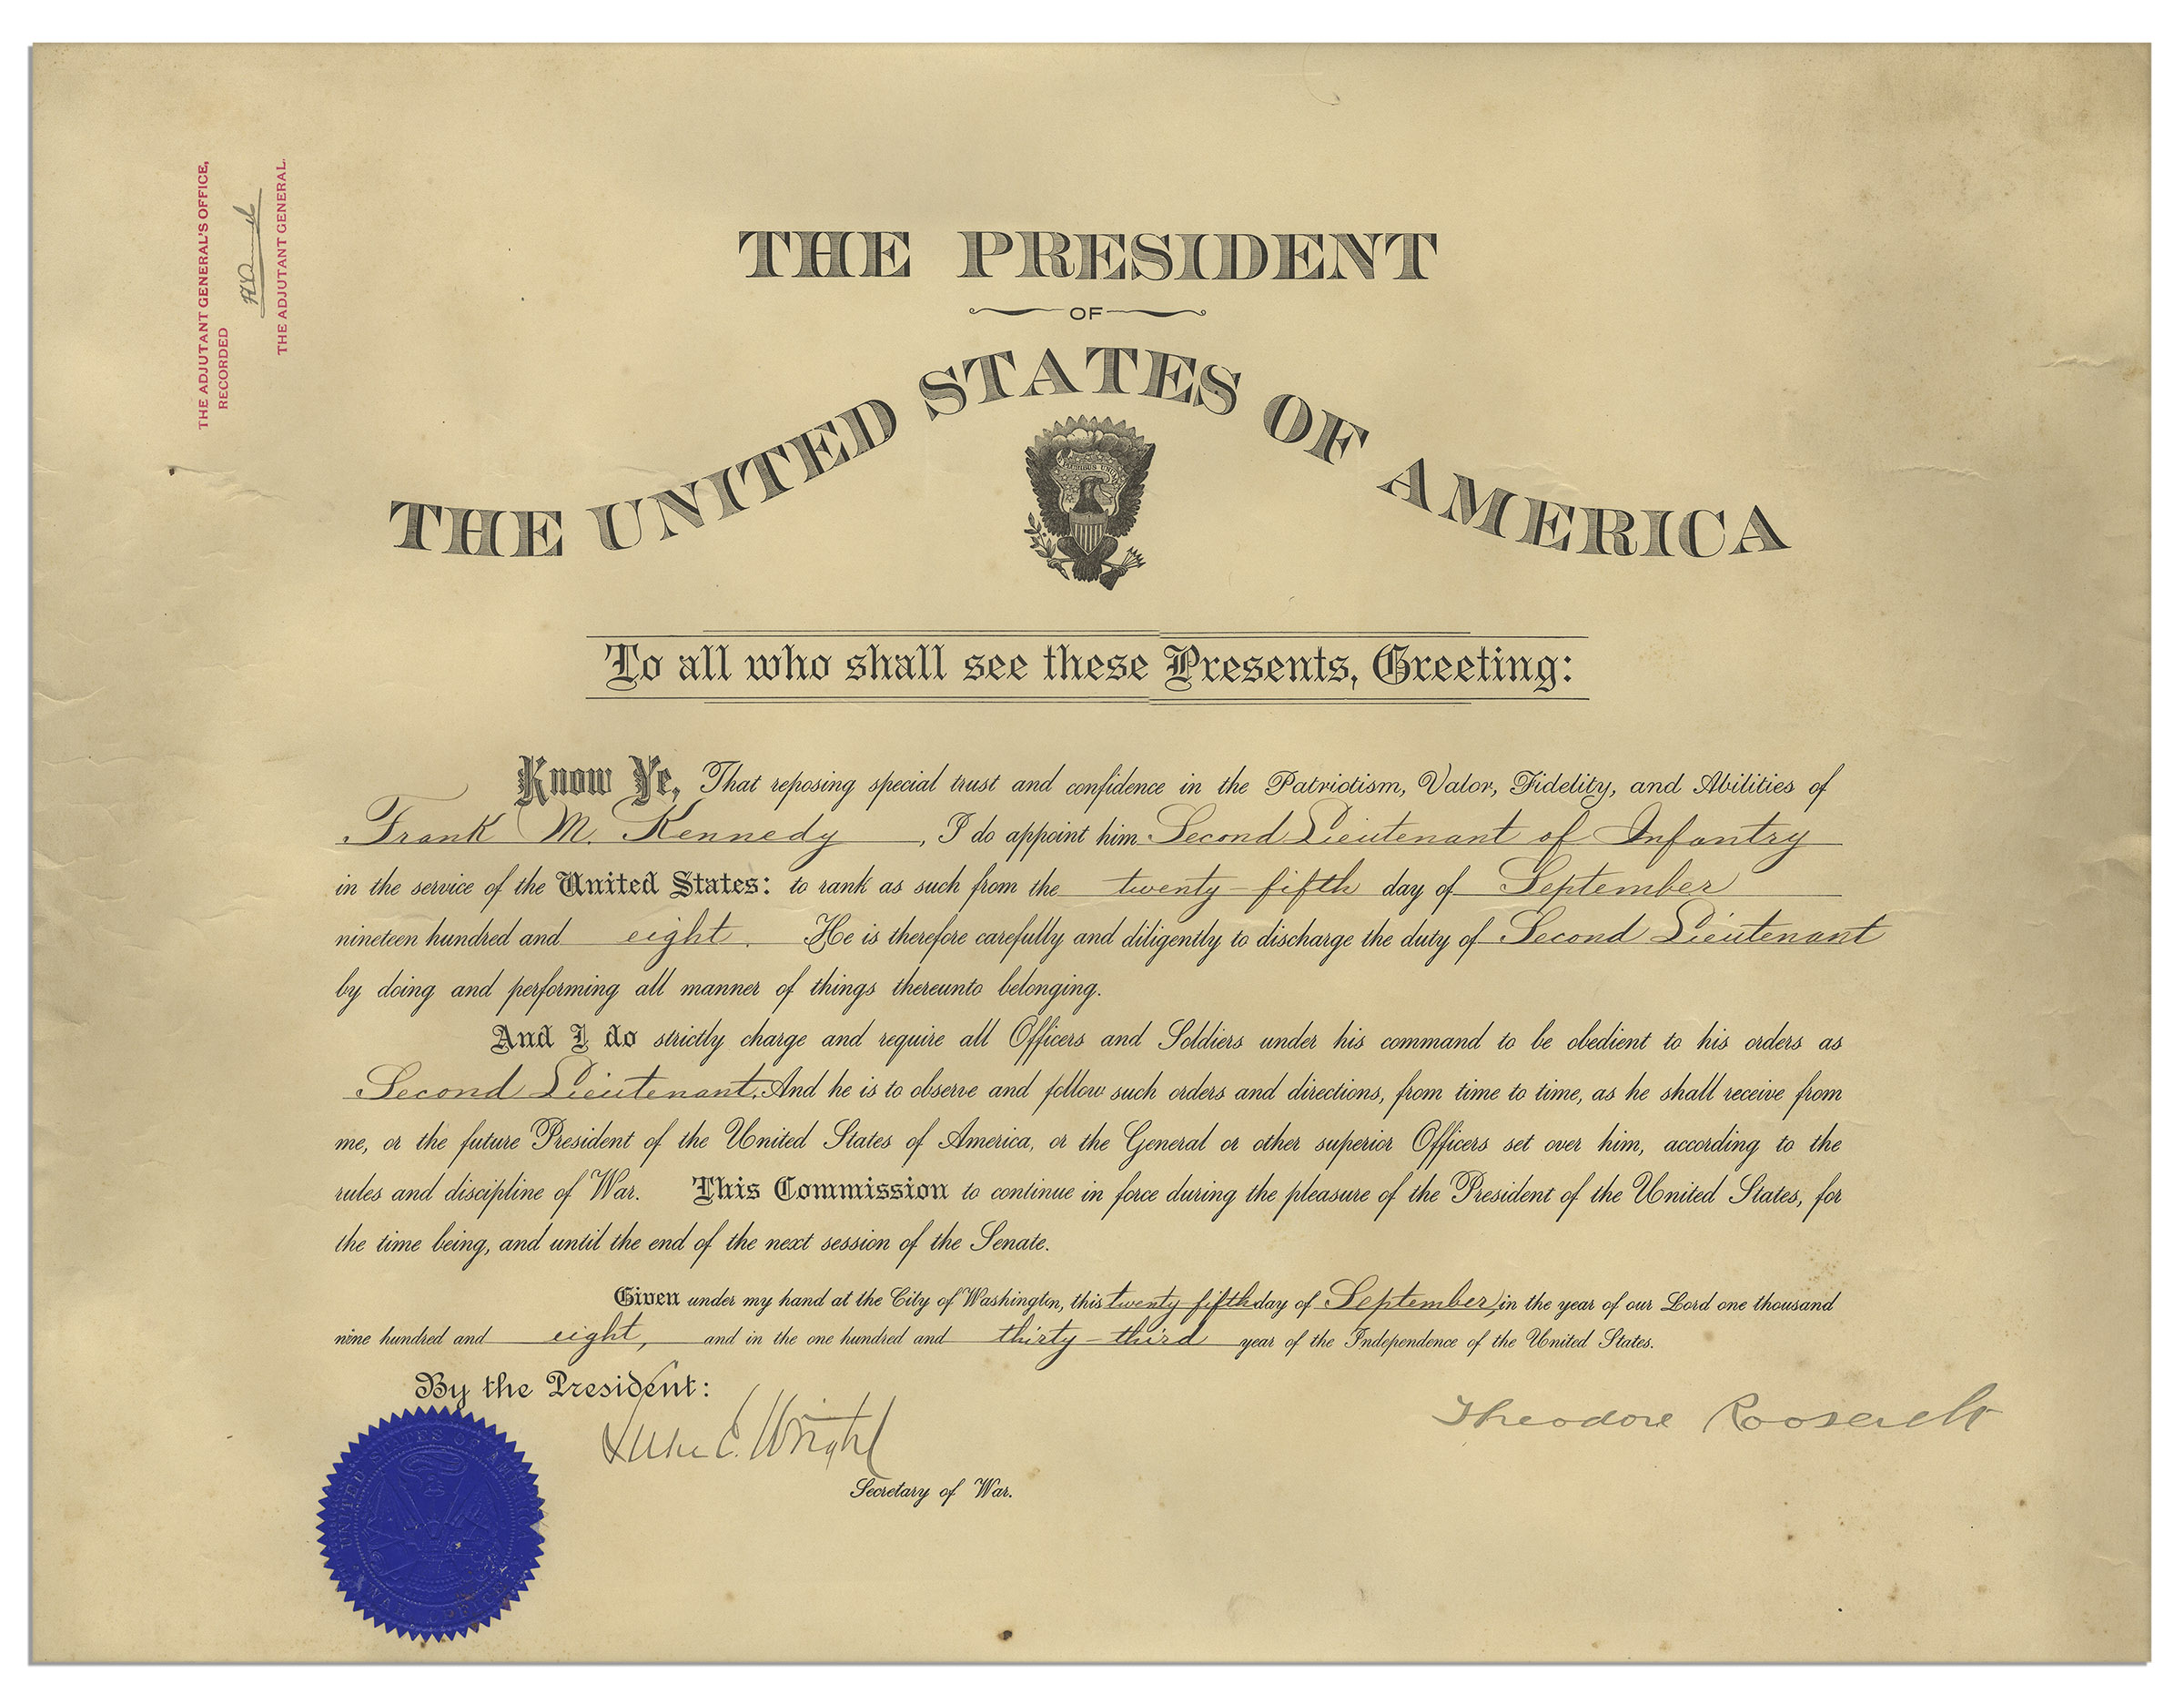 THE ADJUTANT GENERAL'S OFFICE,
RECORDED
THE ADJUTANT GENERAL.
THE PRESIDENT
OF
THE UNITED STATES OF AMERICA
To all who shall see these Presents, Greeting:
Know Ye, That reposing special trust and confidence in the Patriotism, Valor, Fidelity, and Abilities of
Frank M. Kennedy, I do appoint him Second Lieutenant of Infantry
in the service of the United States: to rank as such from the twenty-fifth day of September
nineteen hundred and eight. He is therefore carefully and diligently to discharge the duty of Second Lieutenant
by doing and performing all manner of things thereunto belonging.
And I do strictly charge and require all Officers and Soldiers under his command to be obedient to his orders as
Second Lieutenant. And he is to observe and follow such orders and directions, from time to time, as he shall receive from
me, or the future President of the United States of America, or the General or other superior Officers set over him, according to the
rules and discipline of War. This Commission to continue in force during the pleasure of the President of the United States, for
the time being, and until the end of the next session of the Senate.
Given under my hand at the City of Washington, this twenty-fifth day of September, in the year of our Lord one thousand
nine hundred and eight, and in the one hundred and thirty-third year of the Independence of the United States.
By the President:
Theodore Roosevelt
Luke E. Wright
Secretary of War.
UNITED STATES OF AMERICA
WAR OFFICE